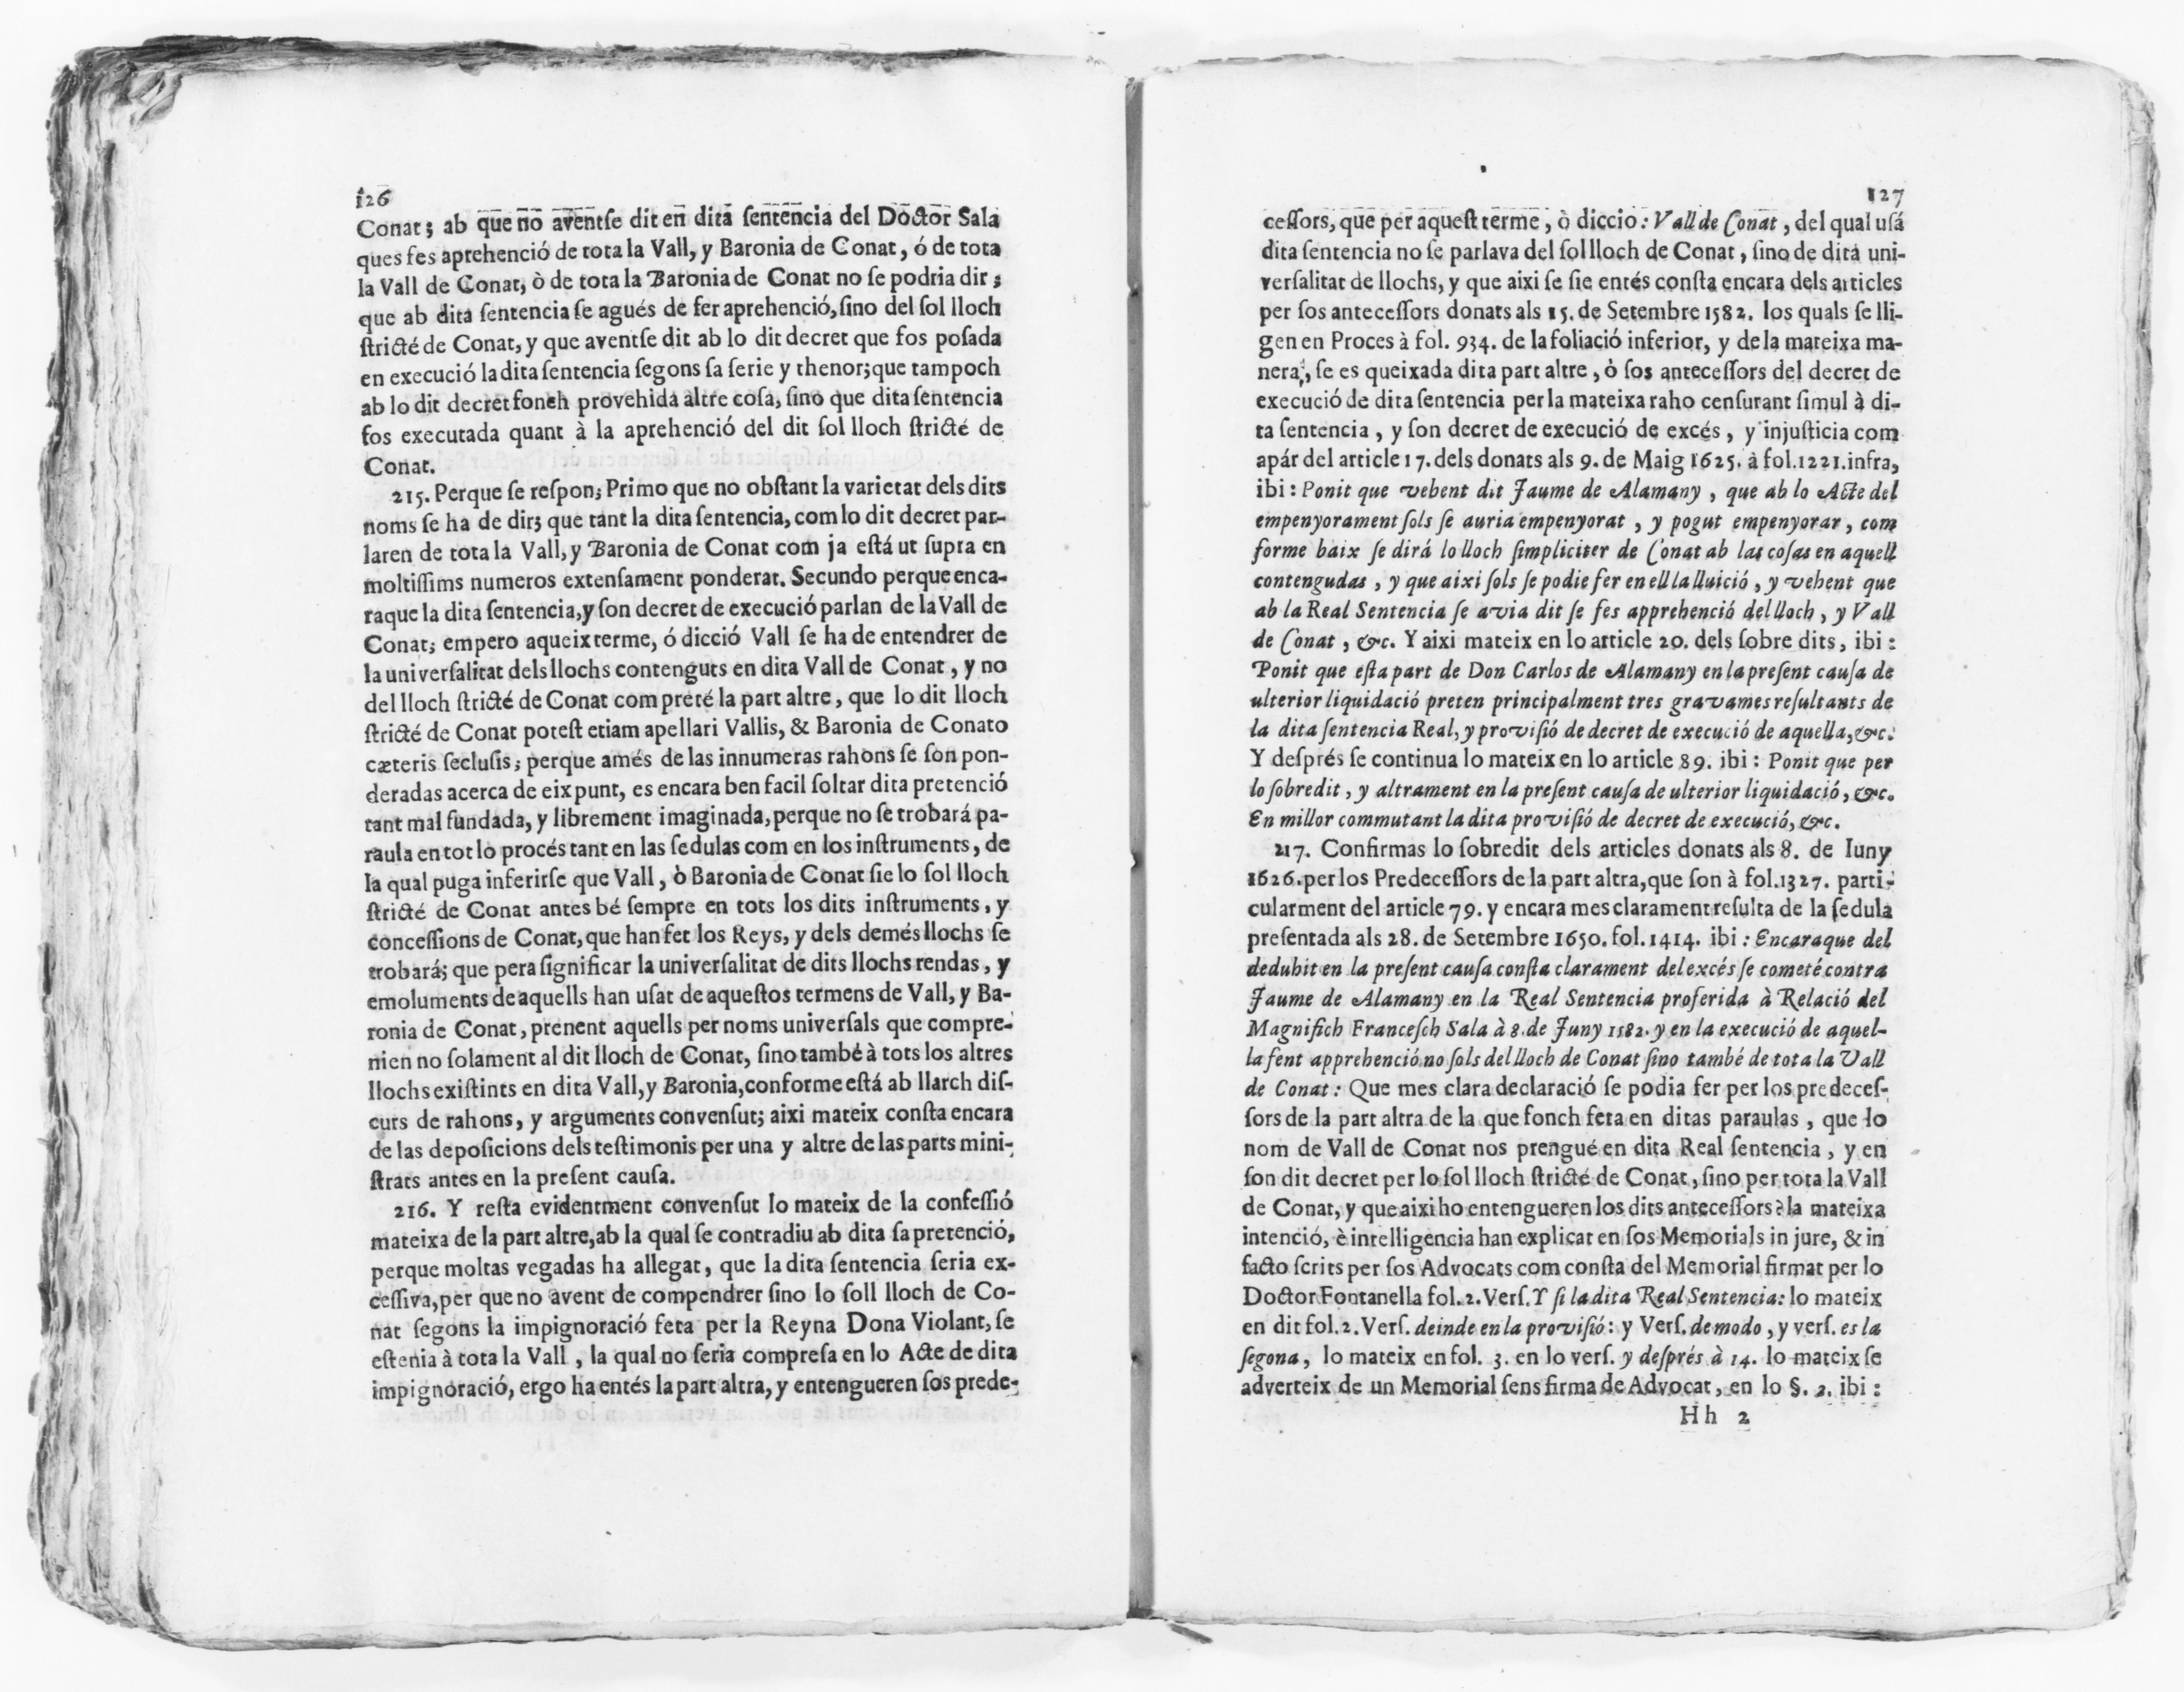 126
Conat; ab que no aventſe dit en dita ſentencia del Doctor Sala
ques fes aprehenció de tota la Vall, y Baronia de Conat, ó de tota
la Vall de Conat, ò de tota la Baronia de Conat no ſe podria dir;
que ab dita ſentencia ſe agués de fer aprehenció, ſino del ſol lloch
ſtricté de Conat, y que aventſe dit ab lo dit decret que fos poſada
en execució la dita ſentencia ſegons ſa ſerie y thenor; que tampoch
ab lo dit decret fonch provehida altre coſa, ſino que dita ſentencia
fos executada quant à la aprehenció del dit ſol lloch ſtricté de
Conat.
215. Perque ſe reſpon; Primo que no obſtant la varietat dels dits
noms ſe ha de dir; que tant la dita ſentencia, com lo dit decret par-
laren de tota la Vall, y Baronia de Conat com ja eſtá ut ſupra en
moltiſſims numeros extenſament ponderat. Secundo perque enca-
raque la dita ſentencia, y ſon decret de execució parlan de la Vall de
Conat; empero aqueix terme, ó dicció Vall ſe ha de entendrer de
la univerſalitat dels llochs contenguts en dita Vall de Conat, y no
del lloch ſtricté de Conat com preté la part altre, que lo dit lloch
ſtricté de Conat poteſt etiam apellari Vallis, & Baronia de Conato
cæteris ſecluſis; perque amés de las innumeras rahons ſe ſon pon-
deradas acerca de eix punt, es encara ben facil ſoltar dita pretenció
tant mal fundada, y librement imaginada, perque no ſe trobará pa-
raula en tot lo procés tant en las ſedulas com en los inſtruments, de
la qual puga inferirſe que Vall, ò Baronia de Conat ſie lo ſol lloch
ſtricté de Conat antes bé ſempre en tots los dits inſtruments, y
conceſſions de Conat, que han fet los Reys, y dels demés llochs ſe
trobará; que pera ſignificar la univerſalitat de dits llochs rendas, y
emoluments de aquells han uſat de aqueſtos termens de Vall, y Ba-
ronia de Conat, prenent aquells per noms univerſals que compre-
nien no ſolament al dit lloch de Conat, ſino també à tots los altres
llochs exiſtints en dita Vall, y Baronia, conforme eſtá ab llarch diſ-
curs de rahons, y arguments convenſut; aixi mateix conſta encara
de las depoſicions dels teſtimonis per una y altre de las parts mini-
ſtrats antes en la preſent cauſa.
216. Y reſta evidentment convenſut lo mateix de la confeſſió
mateixa de la part altre, ab la qual ſe contradiu ab dita ſa pretenció,
perque moltas vegadas ha allegat, que la dita ſentencia ſeria ex-
ceſſiva, per que no avent de compendrer ſino lo ſoll lloch de Co-
nat ſegons la impignoració feta per la Reyna Dona Violant, ſe
eſtenia à tota la Vall, la qual no ſeria compreſa en lo Acte de dita
impignoració, ergo ha entés la part altra, y entengueren ſos prede-
127
ceſſors, que per aqueſt terme, ò diccio: Vall de Conat, del qual uſá
dita ſentencia no ſe parlava del ſol lloch de Conat, ſino de dita uni-
verſalitat de llochs, y que aixi ſe ſie entés conſta encara dels articles
per ſos anteceſſors donats als 15. de Setembre 1582. los quals ſe lli-
gen en Proces à fol. 934. de la foliació inferior, y de la mateixa ma-
nera, ſe es queixada dita part altre, ò ſos anteceſſors del decret de
execució de dita ſentencia per la mateixa raho cenſurant ſimul à di-
ta ſentencia, y ſon decret de execució de excés, y injuſticia com
apár del article 17. dels donats als 9. de Maig 1625. à fol. 1221. infra,
ibi: Ponit que vebent dit Jaume de Alamany, que ab lo Acte del
empenyorament ſols ſe auria empenyorat, y pogut empenyorar, com
forme baix ſe dirá lo lloch ſimpliciter de Conat ab las coſas en aquell
contengudas, y que aixi ſols ſe podie fer en ell la lluició, y vehent que
ab la Real Sentencia ſe avia dit ſe fes apprehenció del lloch, y Vall
de Conat, &c. Y aixi mateix en lo article 20. dels ſobre dits, ibi:
Ponit que eſta part de Don Carlos de Alamany en la preſent cauſa de
ulterior liquidació preten principalment tres gravames reſultants de
la dita ſentencia Real, y proviſió de decret de execució de aquella, &c.
Y deſprés ſe continua lo mateix en lo article 89. ibi: Ponit que per
lo ſobredit, y altrament en la preſent cauſa de ulterior liquidació, &c.
En millor commutant la dita proviſió de decret de execució, &c.
217. Confirmas lo ſobredit dels articles donats als 8. de Iuny
1626. per los Predeceſſors de la part altra, que ſon à fol. 1327. parti-
cularment del article 79. y encara mes clarament reſulta de la ſedula
preſentada als 28. de Setembre 1650. fol. 1414. ibi: Encaraque del
deduhit en la preſent cauſa conſta clarament del excés ſe cometé contra
Jaume de Alamany en la Real Sentencia proferida à Relació del
Magnifich Franceſch Sala à 8. de Juny 1582. y en la execució de aquel-
la fent apprehenció no ſols del lloch de Conat ſino també de tota la Vall
de Conat: Que mes clara declaració ſe podia fer per los predeceſ-
ſors de la part altra de la que fonch feta en ditas paraulas, que lo
nom de Vall de Conat nos prengué en dita Real ſentencia, y en
ſon dit decret per lo ſol lloch ſtricté de Conat, ſino per tota la Vall
de Conat, y que aixi ho entengueren los dits anteceſſors? la mateixa
intenció, è intelligencia han explicat en ſos Memorials in jure, & in
facto ſcrits per ſos Advocats com conſta del Memorial firmat per lo
Doctor Fontanella fol. 2. Verſ. Y ſi la dita Real Sentencia: lo mateix
en dit fol. 2. Verſ. deinde en la proviſió: y Verſ. de modo, y verſ. es la
ſegona, lo mateix en fol. 3. en lo verſ. y deſprés à 14. lo mateix ſe
adverteix de un Memorial ſens firma de Advocat, en lo §. 2. ibi:
Hh 2